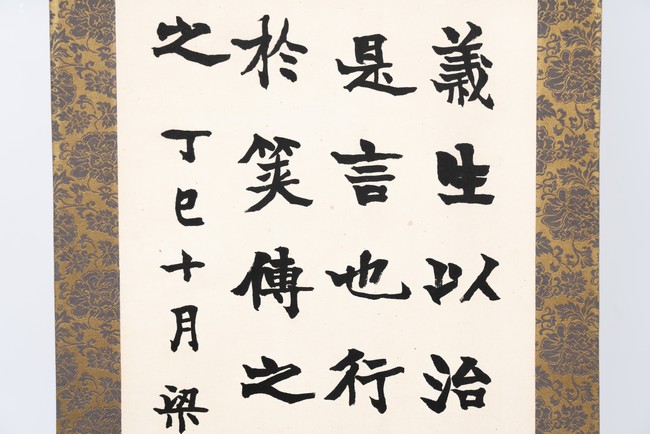 義生以治
是言也行
於筴傳之
之 丁巳十月梁